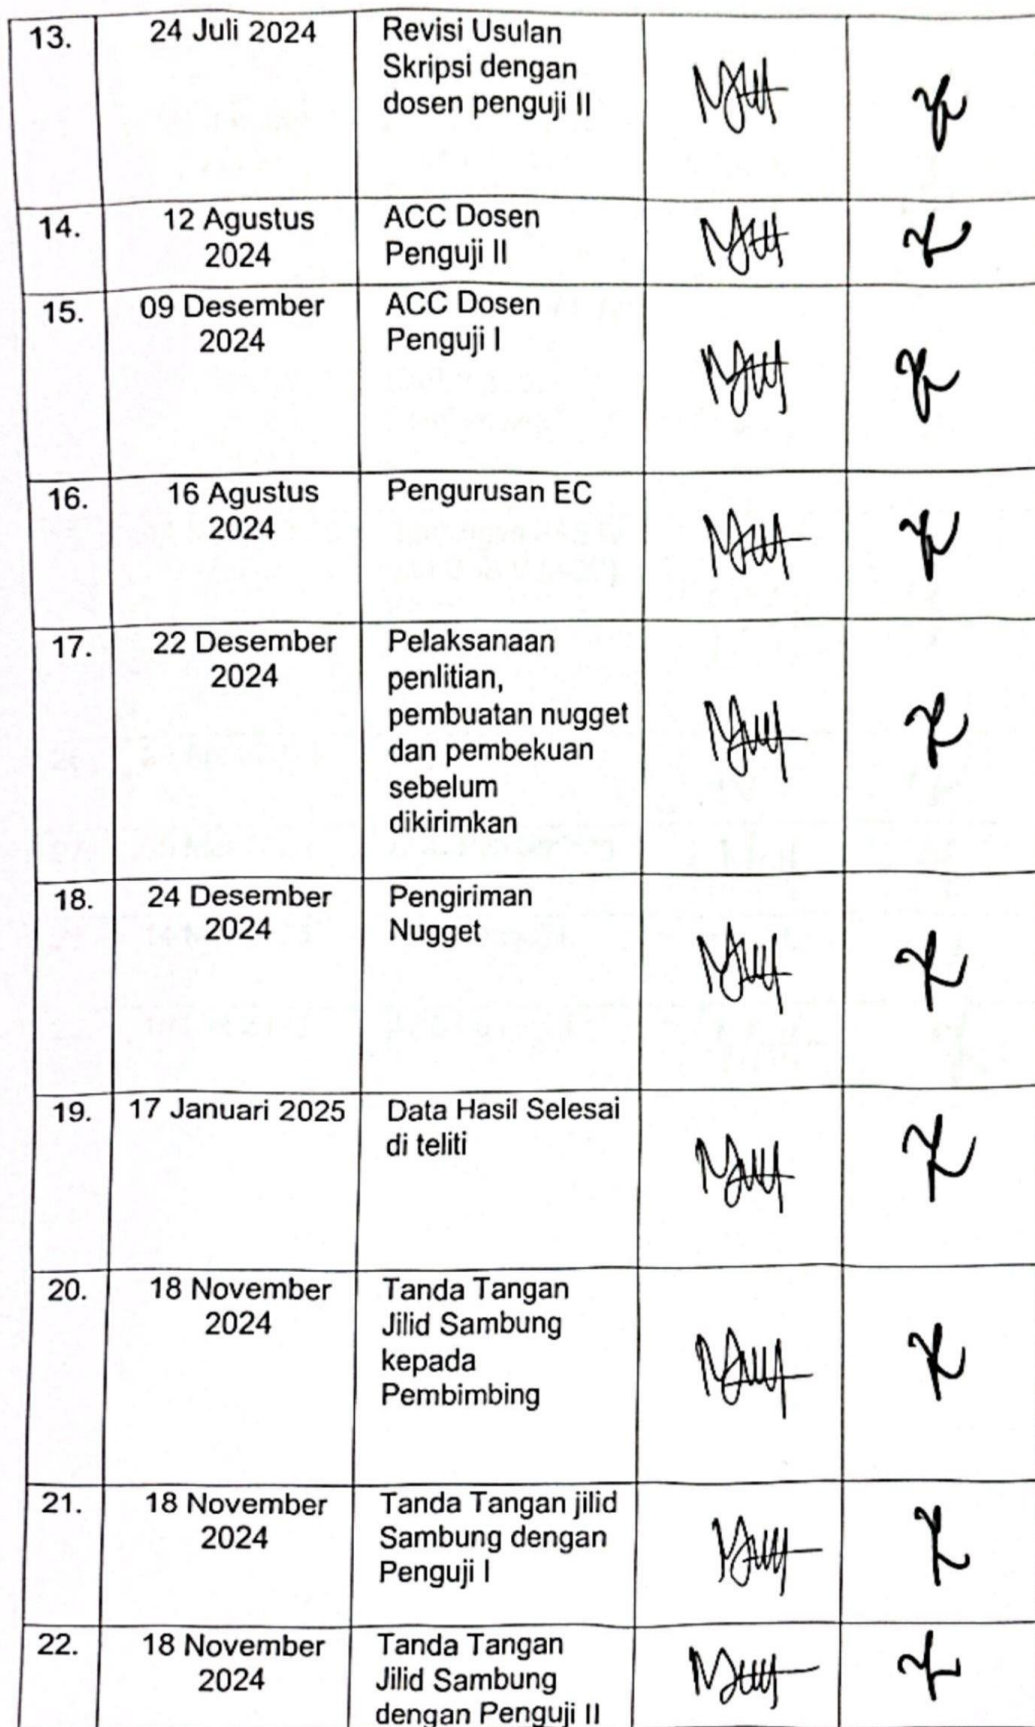 13.
24 Juli 2024
Revisi Usulan
Skripsi dengan
dosen penguji II
14.
12 Agustus
2024
ACC Dosen
Penguji II
15.
09 Desember
2024
ACC Dosen
Penguji I
16.
16 Agustus
2024
Pengurusan EC
17.
22 Desember
2024
Pelaksanaan
penlitian,
pembuatan nugget
dan pembekuan
sebelum
dikirimkan
18.
24 Desember
2024
Pengiriman
Nugget
19.
17 Januari 2025
Data Hasil Selesai
di teliti
20.
18 November
2024
Tanda Tangan
Jilid Sambung
kepada
Pembimbing
21.
18 November
2024
Tanda Tangan jilid
Sambung dengan
Penguji I
22.
18 November
2024
Tanda Tangan
Jilid Sambung
dengan Penguji II